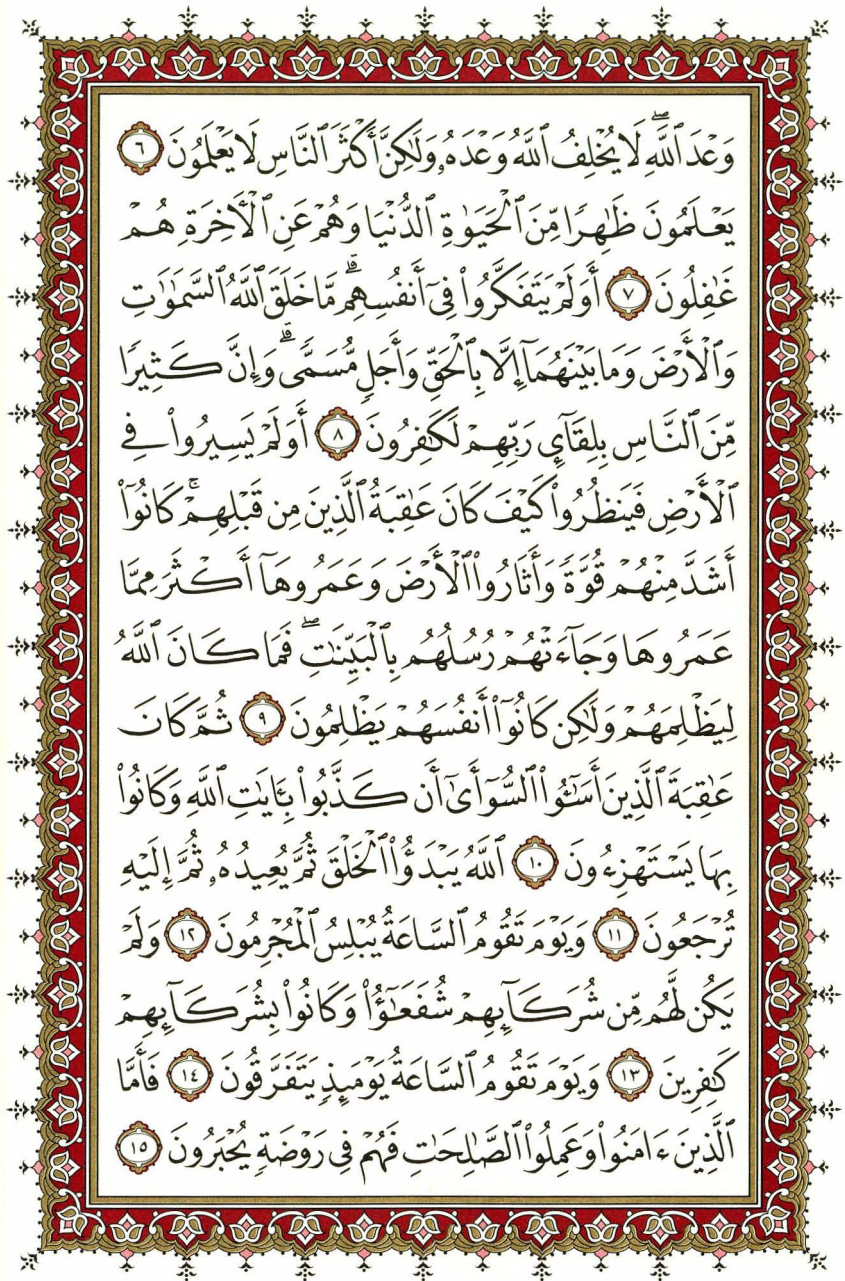 وَعْدَ ٱللَّهِ ۖ لَا يُخْلِفُ ٱللَّهُ وَعْدَهُۥ وَلَٰكِنَّ أَكْثَرَ ٱلنَّاسِ لَا يَعْلَمُونَ ٦
يَعْلَمُونَ ظَٰهِرًا مِّنَ ٱلْحَيَوٰةِ ٱلدُّنْيَا وَهُمْ عَنِ ٱلْـَٔاخِرَةِ هُمْ
غَٰفِلُونَ ٧ أَوَلَمْ يَتَفَكَّرُوا۟ فِىٓ أَنفُسِهِم ۗ مَّا خَلَقَ ٱللَّهُ ٱلسَّمَٰوَٰتِ
وَٱلْأَرْضَ وَمَا بَيْنَهُمَآ إِلَّا بِٱلْحَقِّ وَأَجَلٍ مُّسَمًّى ۗ وَإِنَّ كَثِيرًا
مِّنَ ٱلنَّاسِ بِلِقَآئِ رَبِّهِمْ لَكَٰفِرُونَ ٨ أَوَلَمْ يَسِيرُوا۟ فِى
ٱلْأَرْضِ فَيَنظُرُوا۟ كَيْفَ كَانَ عَٰقِبَةُ ٱلَّذِينَ مِن قَبْلِهِمْ ۚ كَانُوٓا۟
أَشَدَّ مِنْهُمْ قُوَّةً وَأَثَارُوا۟ ٱلْأَرْضَ وَعَمَرُوهَآ أَكْثَرَ مِمَّا
عَمَرُوهَا وَجَآءَتْهُمْ رُسُلُهُم بِٱلْبَيِّنَٰتِ ۖ فَمَا كَانَ ٱللَّهُ
لِيَظْلِمَهُمْ وَلَٰكِن كَانُوٓا۟ أَنفُسَهُمْ يَظْلِمُونَ ٩ ثُمَّ كَانَ
عَٰقِبَةَ ٱلَّذِينَ أَسَٰٓـُٔوا۟ ٱلسُّوٓأَىٰٓ أَن كَذَّبُوا۟ بِـَٔايَٰتِ ٱللَّهِ وَكَانُوا۟
بِهَا يَسْتَهْزِءُونَ ١٠ ٱللَّهُ يَبْدَؤُا۟ ٱلْخَلْقَ ثُمَّ يُعِيدُهُۥ ثُمَّ إِلَيْهِ
تُرْجَعُونَ ١١ وَيَوْمَ تَقُومُ ٱلسَّاعَةُ يُبْلِسُ ٱلْمُجْرِمُونَ ١٢ وَلَمْ
يَكُن لَّهُم مِّن شُرَكَآئِهِمْ شُفَعَٰٓؤُا۟ وَكَانُوا۟ بِشُرَكَآئِهِمْ
كَٰفِرِينَ ١٣ وَيَوْمَ تَقُومُ ٱلسَّاعَةُ يَوْمَئِذٍ يَتَفَرَّقُونَ ١٤ فَأَمَّا
ٱلَّذِينَ ءَامَنُوا۟ وَعَمِلُوا۟ ٱلصَّٰلِحَٰتِ فَهُمْ فِى رَوْضَةٍ يُحْبَرُونَ ١٥